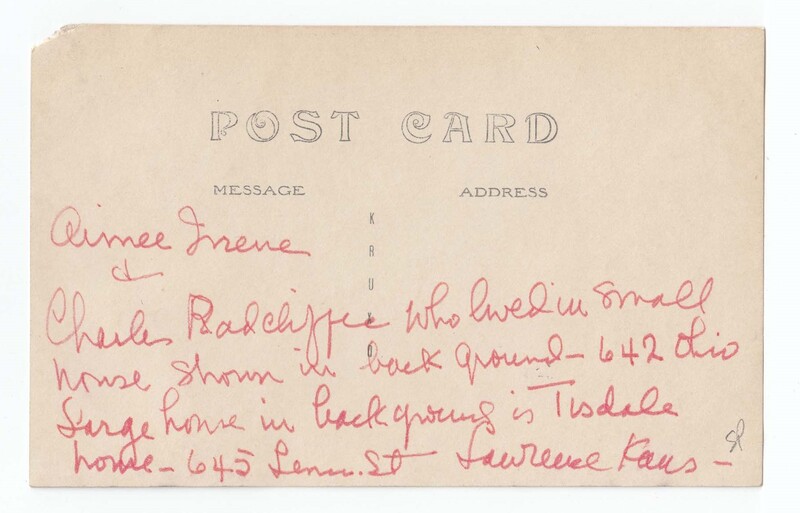 POST CARD
MESSAGE ADDRESS
KRUXO
Aimee Irene
&
Charles Radcliffee who lived in small
house shown in back ground - 642 Ohio
Large house in back groung is Tisdale
home - 645 Tenn. St Lawrence Kans -
SP